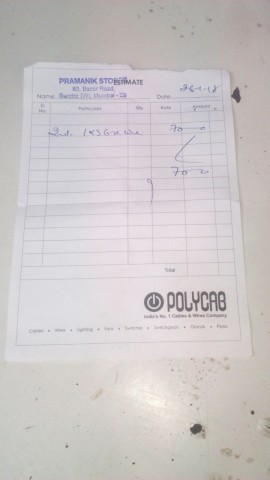 PRAMANIK STORES
ESTIMATE
83, Bazar Road,
Name Bandra (W), Mumbai - 50 Date: 26-1-18
Sl. No. Particulars Qty. Rate Amount
70 0
70 0
Total
POLYCAB
India's No. 1 Cables & Wires Company
Cables • Wires • Lighting • Fans • Switches • Switchgears • Conduits • Pipes